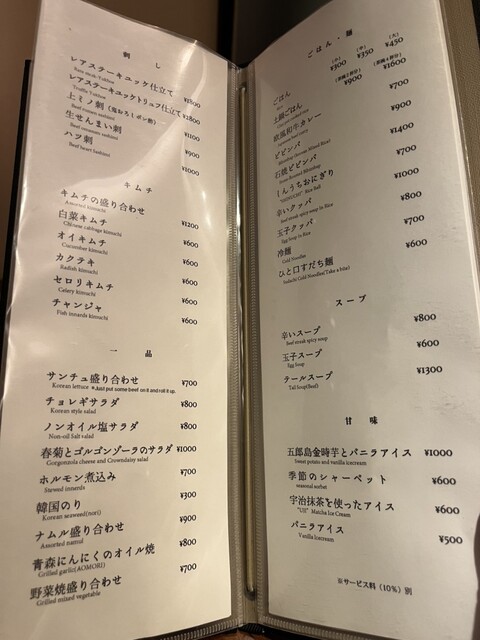 刺 し
レアステーキユッケ仕立て ¥1800
Beef steak Yukhoe
レアステーキユッケトリュフ仕立て ¥2800
Truffle Yukhoe
上ミノ刺(鬼おろしポン酢) ¥1100
Beef rumen sashimi
生せんまい刺 ¥900
Beef omasum sashimi
ハツ刺 ¥1000
Beef heart Sashimi
キムチ
キムチの盛り合わせ ¥1200
Assorted kimuchi
白菜キムチ ¥600
Chinese cabbage kimuchi
オイキムチ ¥600
Cucumber kimuchi
カクテキ ¥600
Radish kimuchi
セロリキムチ ¥600
Celery kimuchi
チャンジャ ¥600
Fish innards kimuchi
一 品
サンチュ盛り合わせ ¥700
Korean lettuce ＊Just put some beef on it and roll it up.
チョレギサラダ ¥800
Korean style salad
ノンオイル塩サラダ ¥800
Non-oil Salt salad
春菊とゴルゴンゾーラのサラダ ¥1000
Gorgonzola cheese and Crowndaisy salad
ホルモン煮込み ¥700
Stewed innerds
韓国のり ¥300
Korean seaweed(nori)
ナムル盛り合わせ ¥900
Assorted namul
青森にんにくのオイル焼 ¥800
Grilled garlic(AOMORI)
野菜焼盛り合わせ ¥700
Grilled mixed vegetable
ごはん・麺
ごはん (小)¥300 (中)¥350 (大)¥450
土鍋ごはん ¥900 ¥1600
欧風和牛カレー ¥700
ビビンバ ¥900
石焼ビビンバ ¥1400
しんうちおにぎり ¥700
辛いクッパ ¥1000
玉子クッパ ¥800
Egg Soup In Rice
冷麺 ¥700
Cold Noodles
ひと口すだち麺 ¥600
Sudachi Cold Noodles(Take a bite)
スープ
辛いスープ ¥800
Beef steak spicy soup
玉子スープ ¥600
Egg Soup
テールスープ ¥1300
Tail Soup(Beef)
甘 味
五郎島金時芋とバニラアイス ¥1000
Sweet potato and vanilla icecream
季節のシャーベット ¥600
seasonal sorbet
宇治抹茶を使ったアイス ¥600
"Uji" Matcha Ice Cream
バニラアイス ¥500
Vanilla Icecream
※サービス料（10%）別